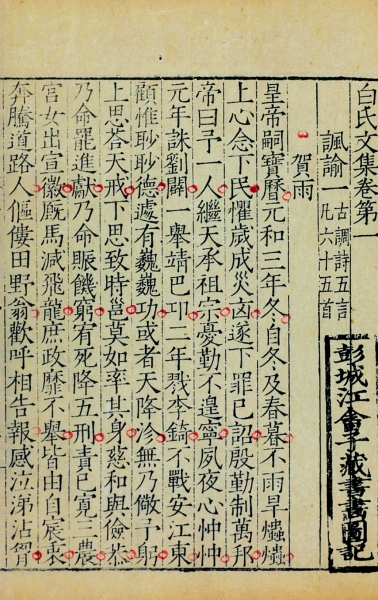 白氏文集卷第一
諷諭一 古調詩五言 凡六十五首
彭城江藏書畫圖記
賀雨
皇帝嗣寶曆元和三年冬自冬及春暮不雨旱爞爞
上心念下民懼歲成災凶遂下罪己詔殷勤制萬邦
帝曰予一人繼天承祖宗憂勤不遑寧夙夜心忡忡
元年誅劉闢一舉靖巴邛二年戮李錡不戰安江東
顧惟眇眇德遽有巍巍功或者天降沴無乃儆予躬
上思荅天戒下思致時邕莫如率其身慈和與儉恭
乃命罷進獻乃命賑饑窮宥死降五刑責己寬三農
宮女出宣徽厩馬減飛龍庶政靡不舉皆由自宸衷
奔騰道路人傴僂田野翁歡呼相告報感泣涕沾胷